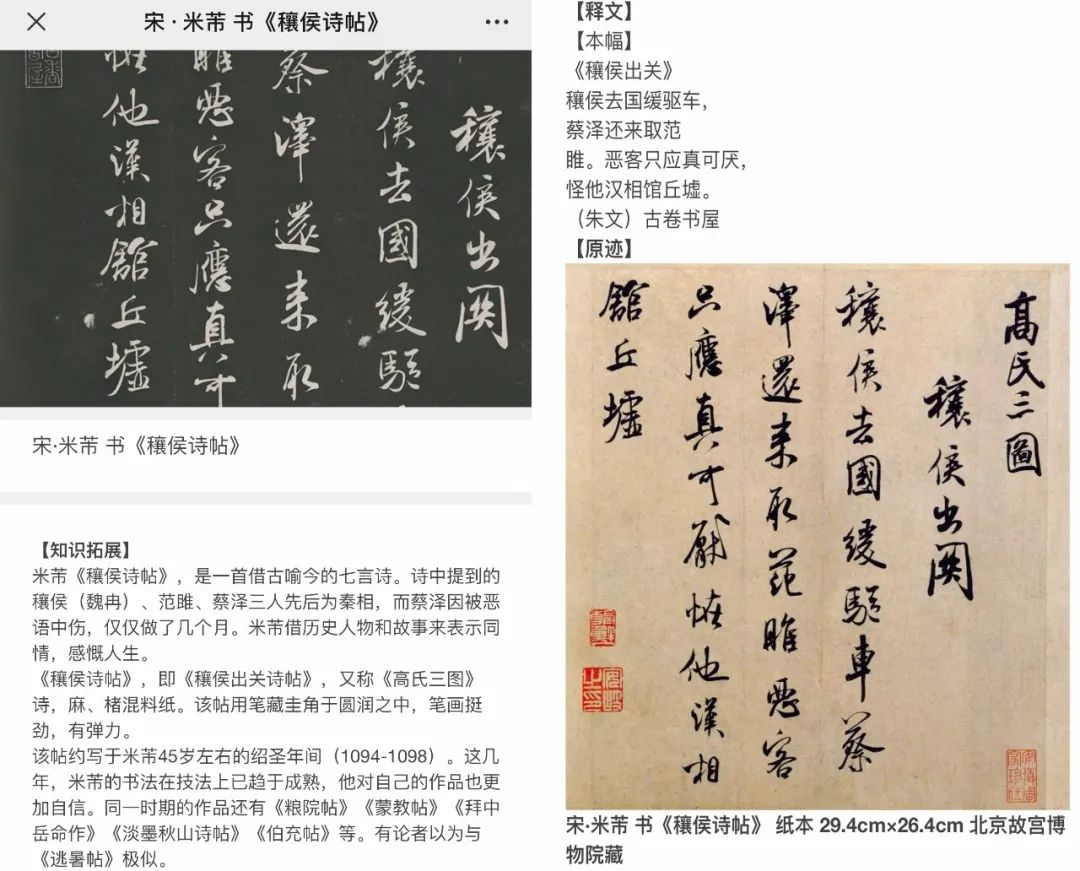 宋·米芾 书《穰侯诗帖》
穰侯出関
穰侯去國緩驅
蔡澤還来取
睢惡客只應真可
恠他漢相館丘墟
宋·米芾 书《穰侯诗帖》
【知识拓展】
米芾《穰侯诗帖》，是一首借古喻今的七言诗。诗中提到的
穰侯（魏冉）、范雎、蔡泽三人先后为秦相，而蔡泽因被恶
语中伤，仅仅做了几个月。米芾借历史人物和故事来表示同
情，感慨人生。
《穰侯诗帖》，即《穰侯出关诗帖》，又称《高氏三图》
诗，麻、楮混料纸。该帖用笔藏圭角于圆润之中，笔画挺
劲，有弹力。
该帖约写于米芾45岁左右的绍圣年间（1094-1098）。这几
年，米芾的书法在技法上已趋于成熟，他对自己的作品也更
加自信。同一时期的作品还有《粮院帖》《蒙教帖》《拜中
岳命作》《淡墨秋山诗帖》《伯充帖》等。有论者以为与
《逃暑帖》极似。
【释文】
【本幅】
《穰侯出关》
穰侯去国缓驱车，
蔡泽还来取范
睢。恶客只应真可厌，
怪他汉相馆丘墟。
（朱文）古卷书屋
【原迹】
髙氏三圖
穰侯出関
穰侯去國緩驅車蔡
澤還来取范睢惡客
只應真可厭恠他漢相
館丘墟
宋·米芾 书《穰侯诗帖》 纸本 29.4cm×26.4cm 北京故宫博
物院藏